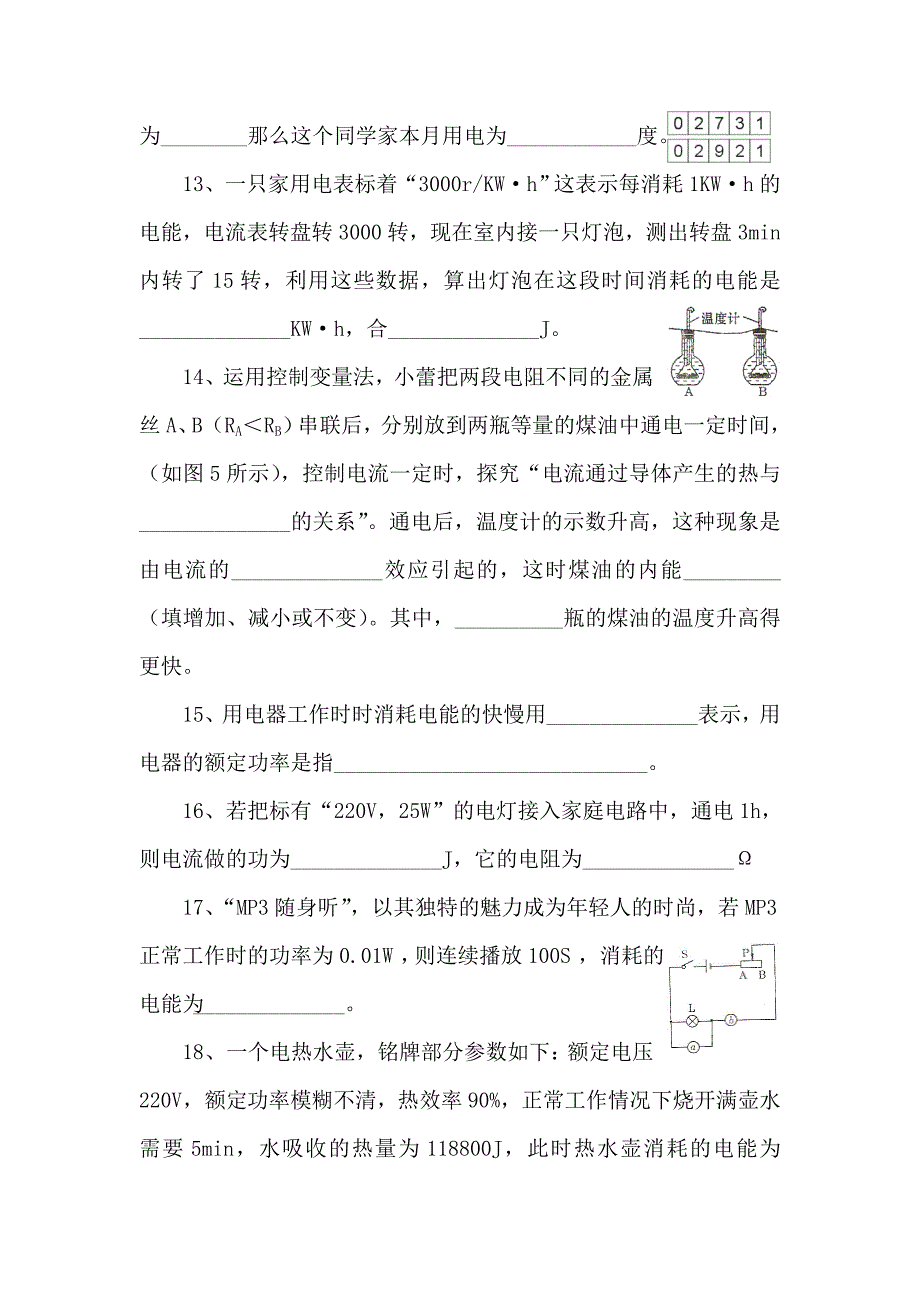 为________那么这个同学家本月用电为____________度。
0 2 7 3 1
0 2 9 2 1
13、一只家用电表标着“3000r/KW·h”这表示每消耗1KW·h的
电能，电流表转盘转3000转，现在室内接一只灯泡，测出转盘3min
内转了15转，利用这些数据，算出灯泡在这段时间消耗的电能是
______________KW·h，合______________J。
温度计
A B
14、运用控制变量法，小蕾把两段电阻不同的金属
丝A、B（RA＜RB）串联后，分别放到两瓶等量的煤油中通电一定时间，
（如图5所示），控制电流一定时，探究“电流通过导体产生的热与
______________的关系”。通电后，温度计的示数升高，这种现象是
由电流的______________效应引起的，这时煤油的内能_________
（填增加、减小或不变）。其中，__________瓶的煤油的温度升高得
更快。
15、用电器工作时时消耗电能的快慢用______________表示，用
电器的额定功率是指_____________________________。
16、若把标有“220V，25W”的电灯接入家庭电路中，通电1h，
则电流做的功为______________J，它的电阻为______________Ω
17、“MP3随身听”，以其独特的魅力成为年轻人的时尚，若MP3
正常工作时的功率为0.01W，则连续播放100S，消耗的
电能为______________。
S P
A B
L
b
a
18、一个电热水壶，铭牌部分参数如下：额定电压
220V，额定功率模糊不清，热效率90%，正常工作情况下烧开满壶水
需要5min，水吸收的热量为118800J，此时热水壶消耗的电能为